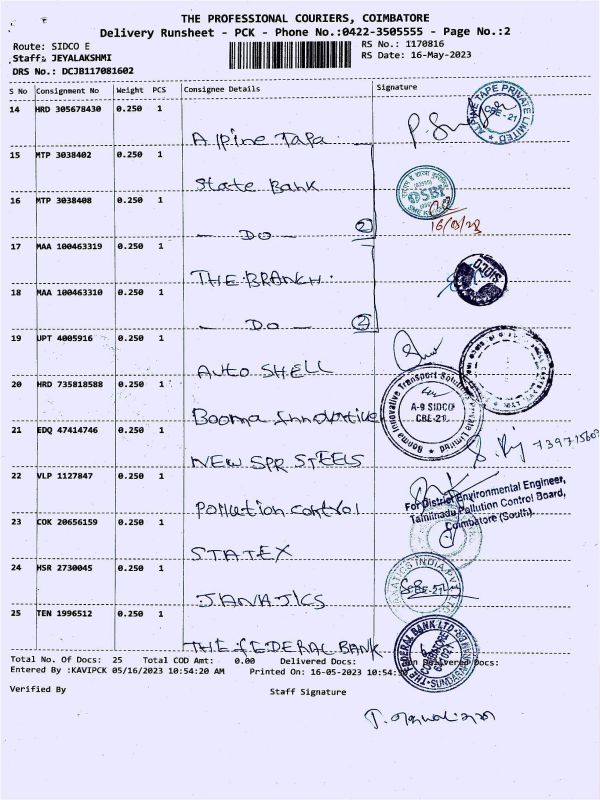 THE PROFESSIONAL COURIERS, COIMBATORE
Delivery Runsheet - PCK - Phone No.:0422-3505555 - Page No.:2
Route: SIDCO E
RS No.: 1170816
Staff: JEYALAKSHMI
RS Date: 16-May-2023
DRS No.: DCJB117081602
S No Consignment No Weight PCS Consignee Details Signature
14 HRD 305678430 0.250 1
Alpine Tapa
15 MTP 3038402 0.250 1
State Bank
16 MTP 3038408 0.250 1
— DO — 2
16/05/23
17 MAA 100463319 0.250 1
THE BRANCH.
18 MAA 100463310 0.250 1
— DO — 2
19 UPT 4005916 0.250 1
AUTO SHELL
20 HRD 735818588 0.250 1
Booma Innovative
21 EDQ 47414746 0.250 1
NEW SPR STEELS
22 VLP 1127847 0.250 1
Pollution control
23 COK 20656159 0.250 1
STATEX
24 HSR 2730045 0.250 1
JANATICS
25 TEN 1996512 0.250 1
THE FEDERAL BANK
ALPINE TAPE PRIVATE LIMITED
CBE-21
SBI
SIDCO
Booma Innovative Transport Solutions Private Limited
A-9 SIDCO
CBE-21.
For District Environmental Engineer,
Tamilnadu Pollution Control Board,
Coimbatore (South).
CBE-21
THE FEDERAL BANK LTD
Total No. Of Docs: 25 Total COD Amt: 0.00 Delivered Docs: Non Delivered Docs:
Entered By :KAVIPCK 05/16/2023 10:54:20 AM Printed On: 16-05-2023 10:54:
Verified By Staff Signature